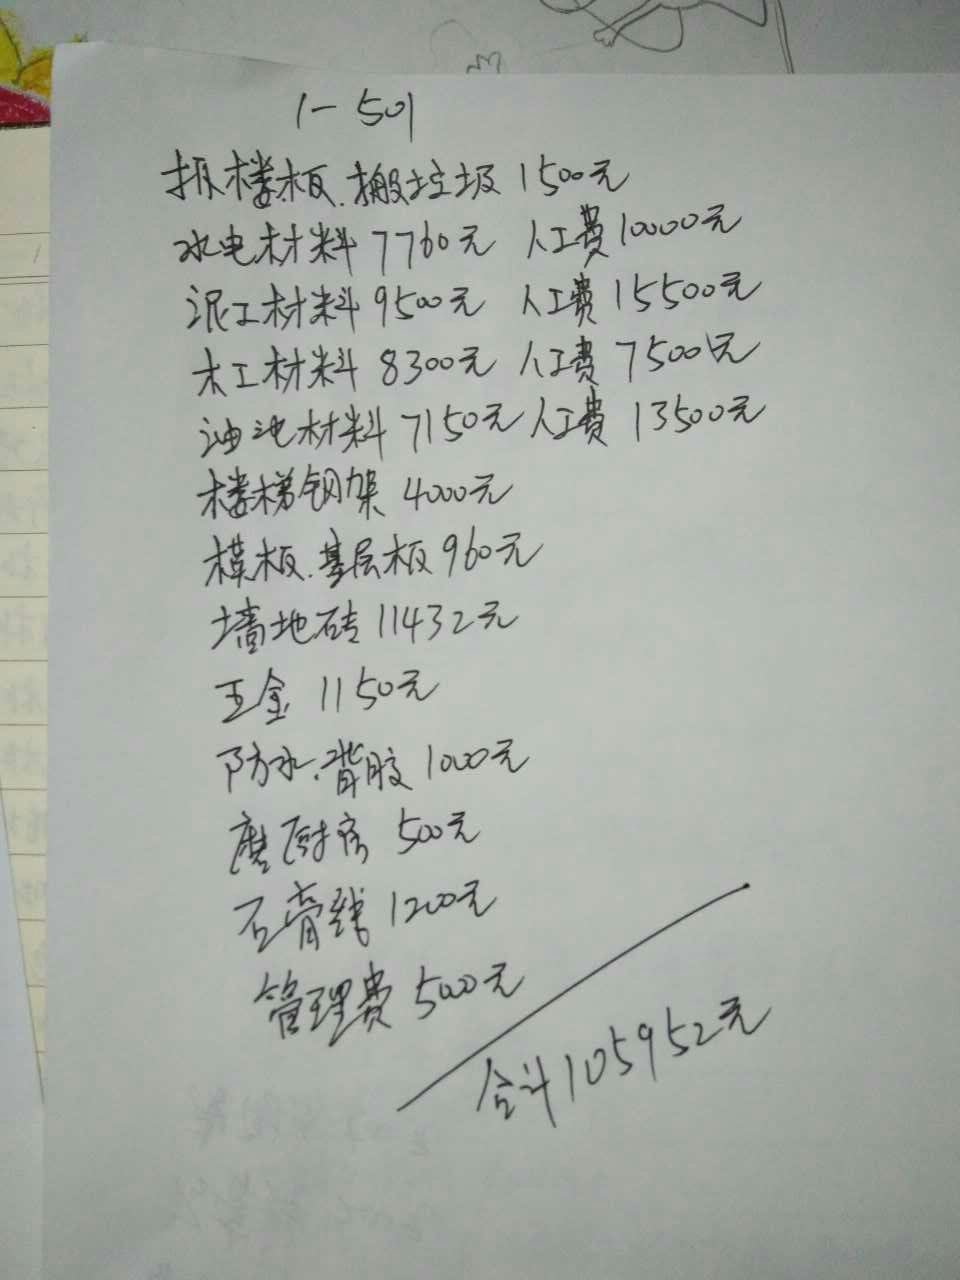 1-501
拆楼板.搬垃圾 1500元
水电材料 7760元 人工费 10000元
泥工材料 9500元 人工费 15500元
木工材料 8300元 人工费 7500元
油池材料 7150元 人工费 13500元
楼梯钢架 4000元
模板.基层板 960元
墙地砖 11432元
五金 1150元
防水.背胶 1000元
磨厨房 500元
石膏线 1200元
管理费 5000元
合计 105952元